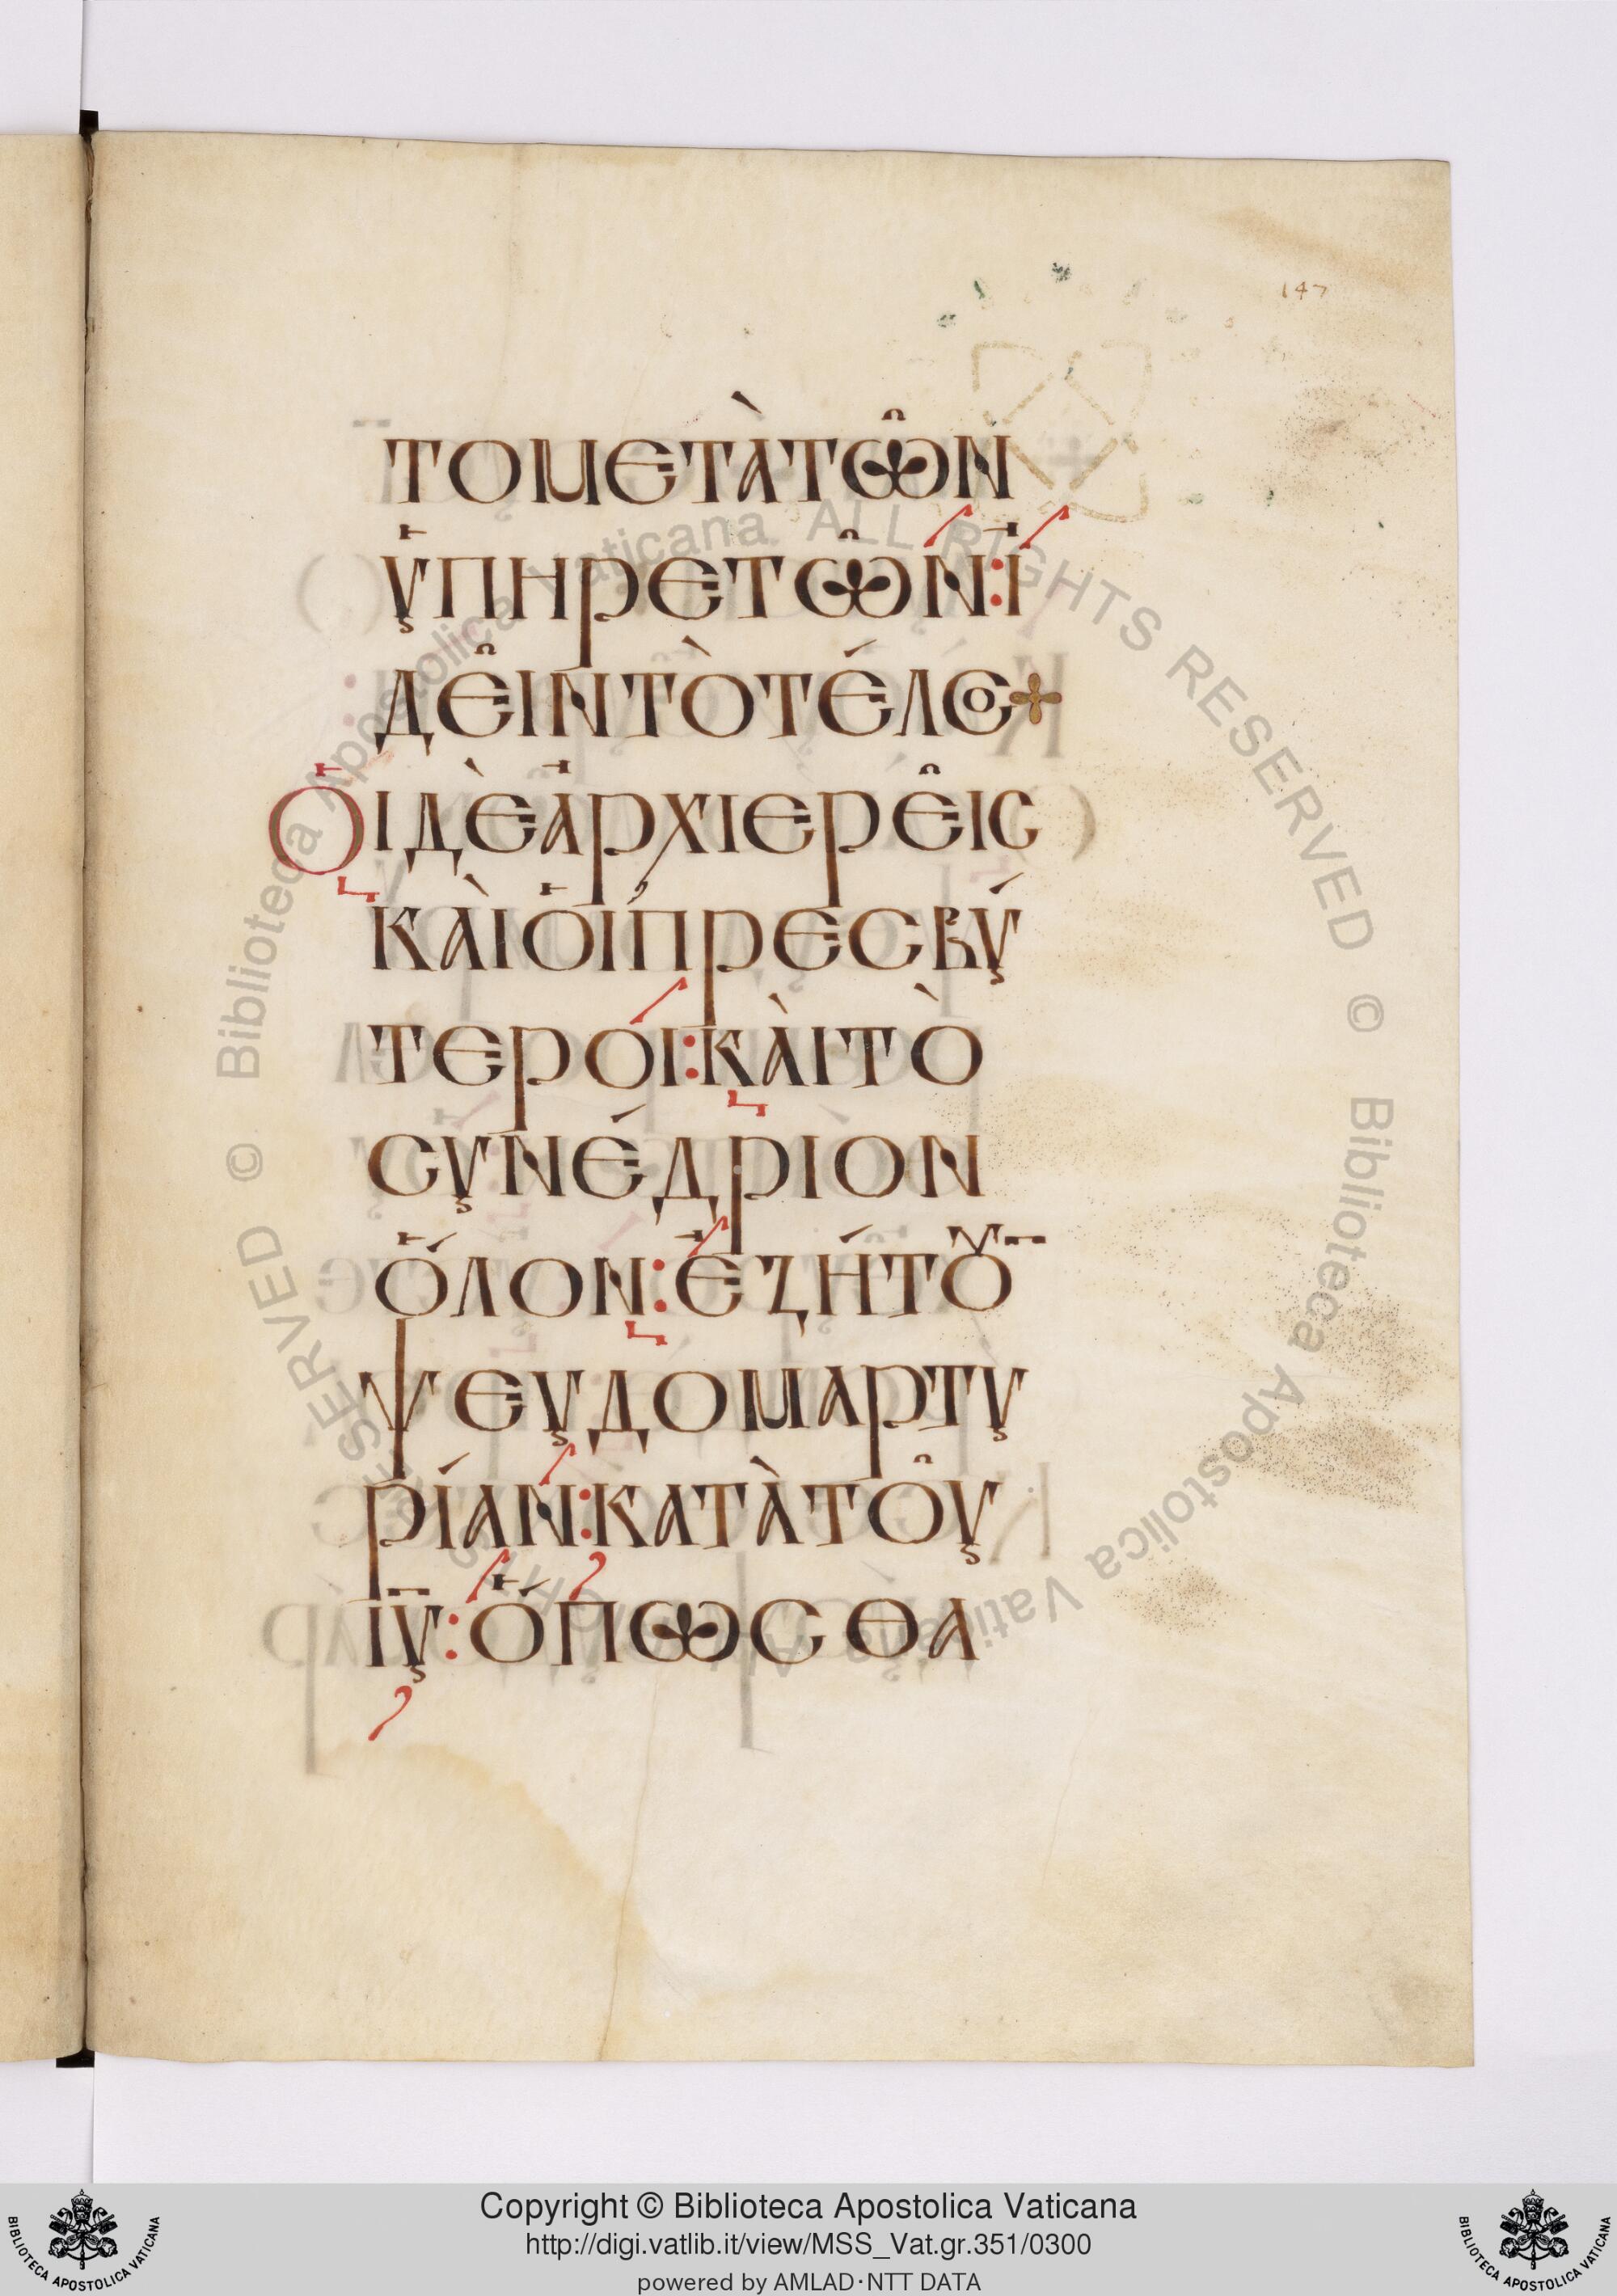 147
ΤΟΜΕΤᾺΤΩ͂Ν
ὙΠΗΡΕΤΩ͂Ν:Ἰ
ΔΕ͂ΙΝΤῸΤΈΛΟϹ
ὉΙΔῈἈΡΧΙΕΡΕ͂ΙϹ
ΚᾺΙὉΙΠΡΕϹΒΎ
ΤΕΡΟΙ:ΚᾺΙΤῸ
ϹΥΝΈΔΡΙΟΝ
ὍΛΟΝ:ἘΖΉΤȢ̄
ΨΕΥΔΟΜΑΡΤΥ
ΡΊΑΝ:ΚΑΤᾺΤΟΥ͂
ΙΥ̅:ὍΠΩϹΘΑ
© Biblioteca Apostolica Vaticana ALL RIGHTS RESERVED © Biblioteca Apostolica Vaticana ALL RIGHTS RESERVED
Copyright © Biblioteca Apostolica Vaticana
http://digi.vatlib.it/view/MSS_Vat.gr.351/0300
powered by AMLAD·NTT DATA
BIBLIOTECA APOSTOLICA VATICANA
BIBLIOTECA APOSTOLICA VATICANA